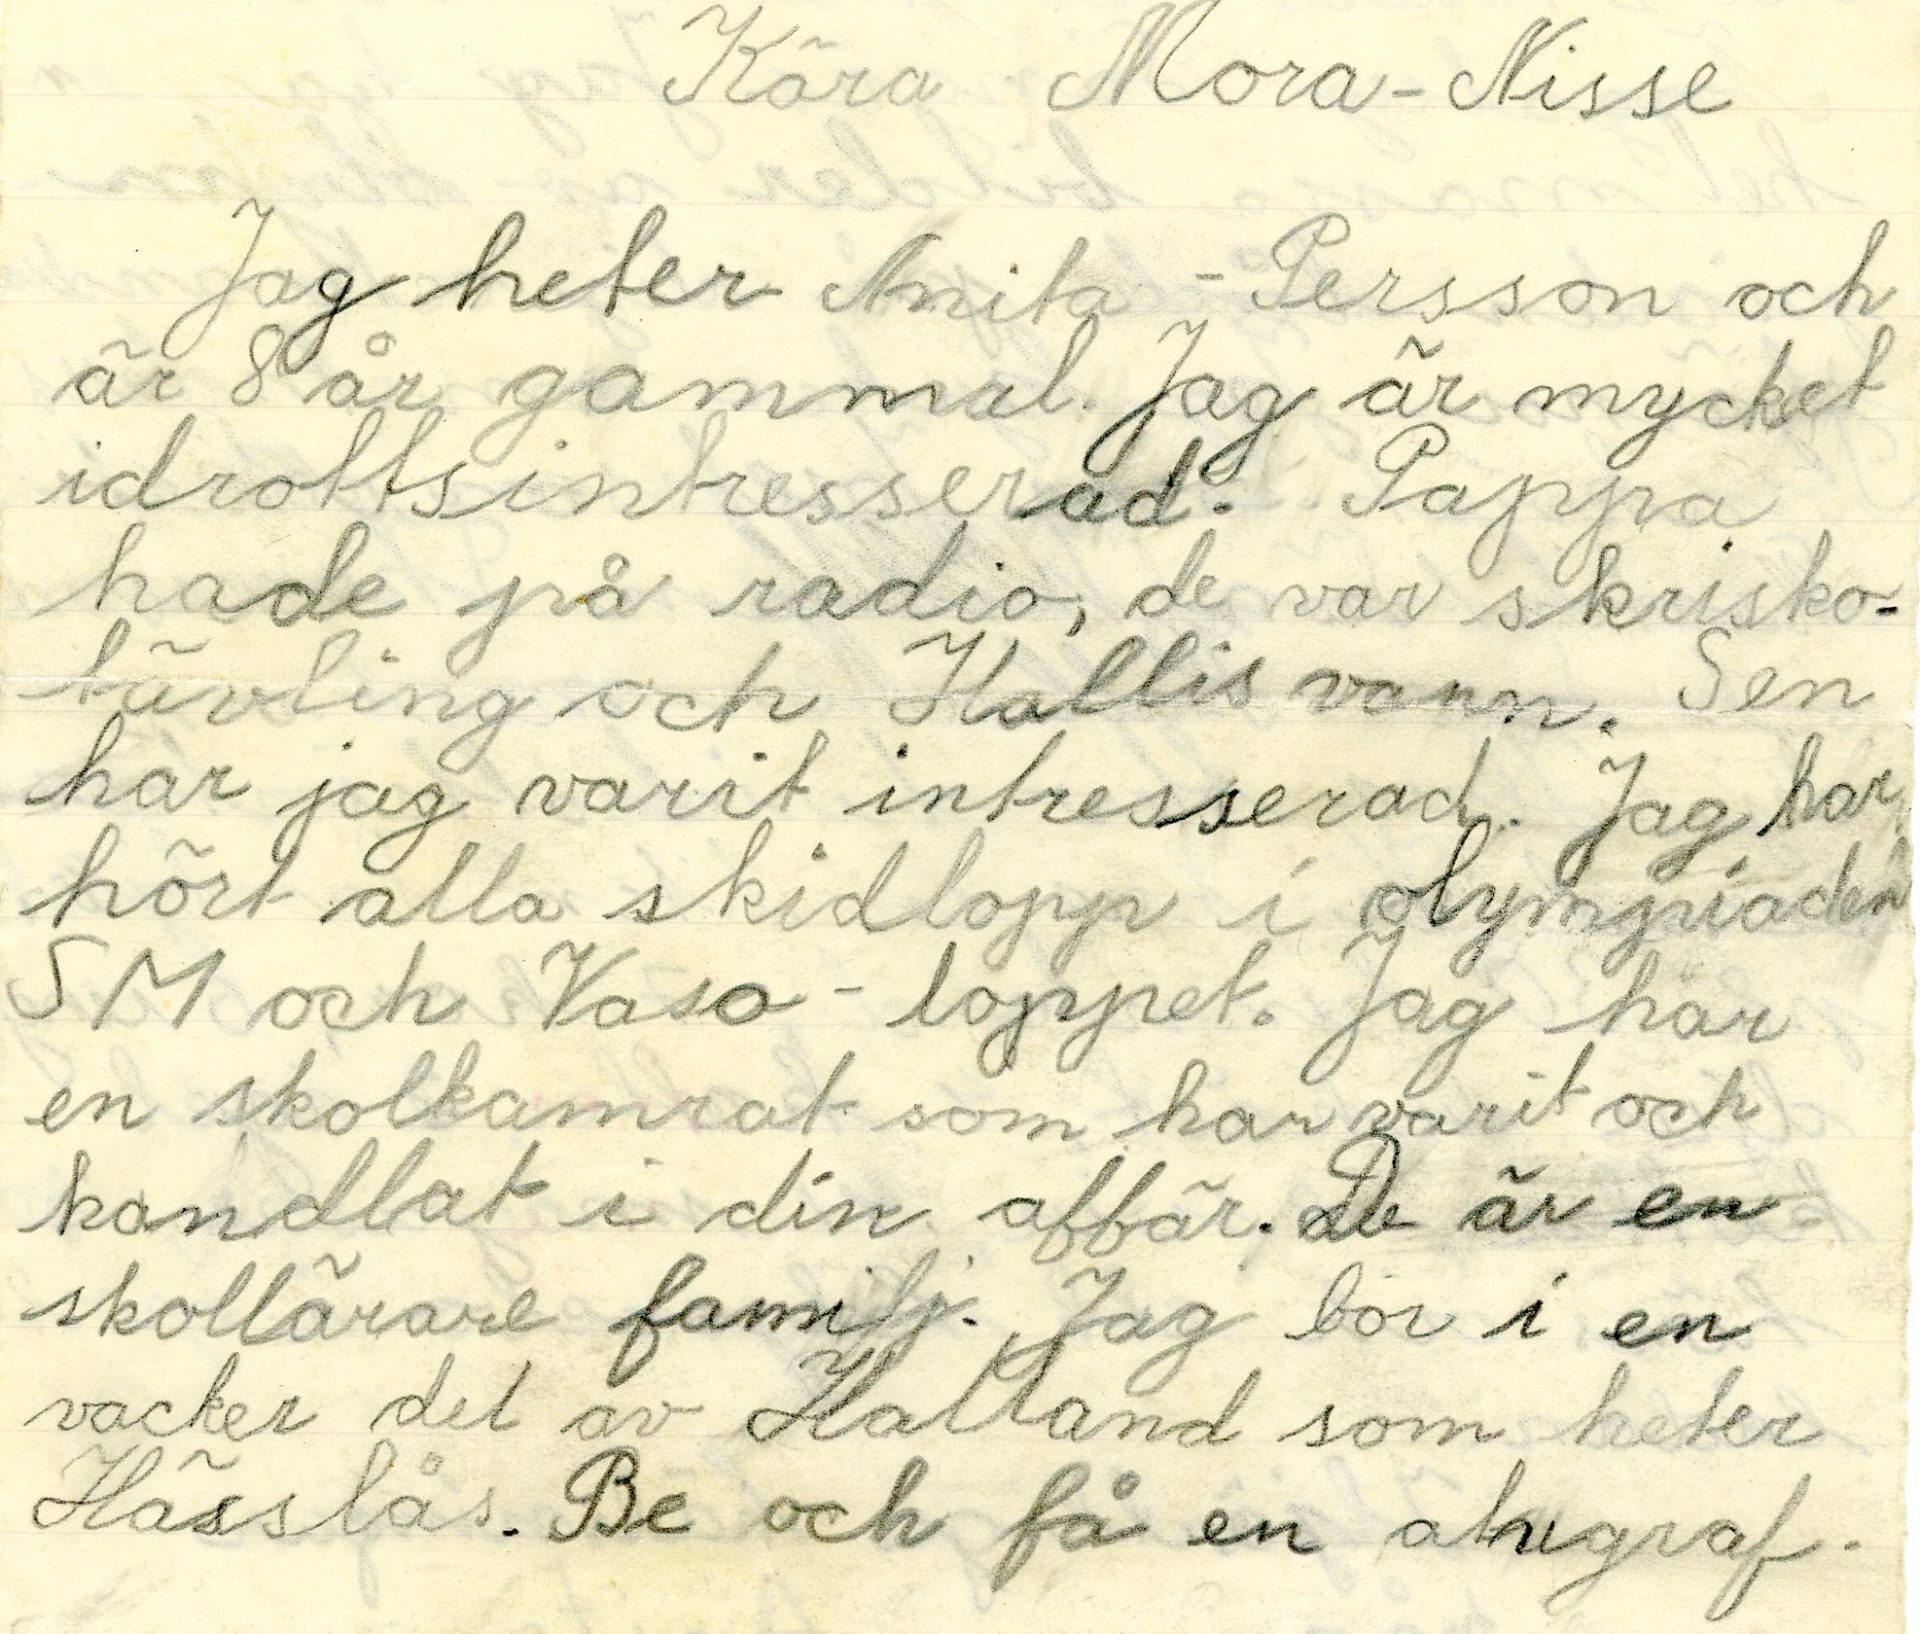 Kära Mora-Nisse
Jag heter Anita - Persson och
är 8 år gammal. Jag är mycket
idrottsintresserad. Pappa
hade på radio, de var skrisko-
tävling och Hallis vann. Sen
har jag varit intresserad. Jag har
hört alla skidlopp i olympiaden
SM och Vasa - loppet. Jag har
en skolkamrat som har varit och
handlat i din affär. De är en
skollärare familj. Jag bor i en
vacker del av Halland som heter
Hässlås. Be och få en atugraf.